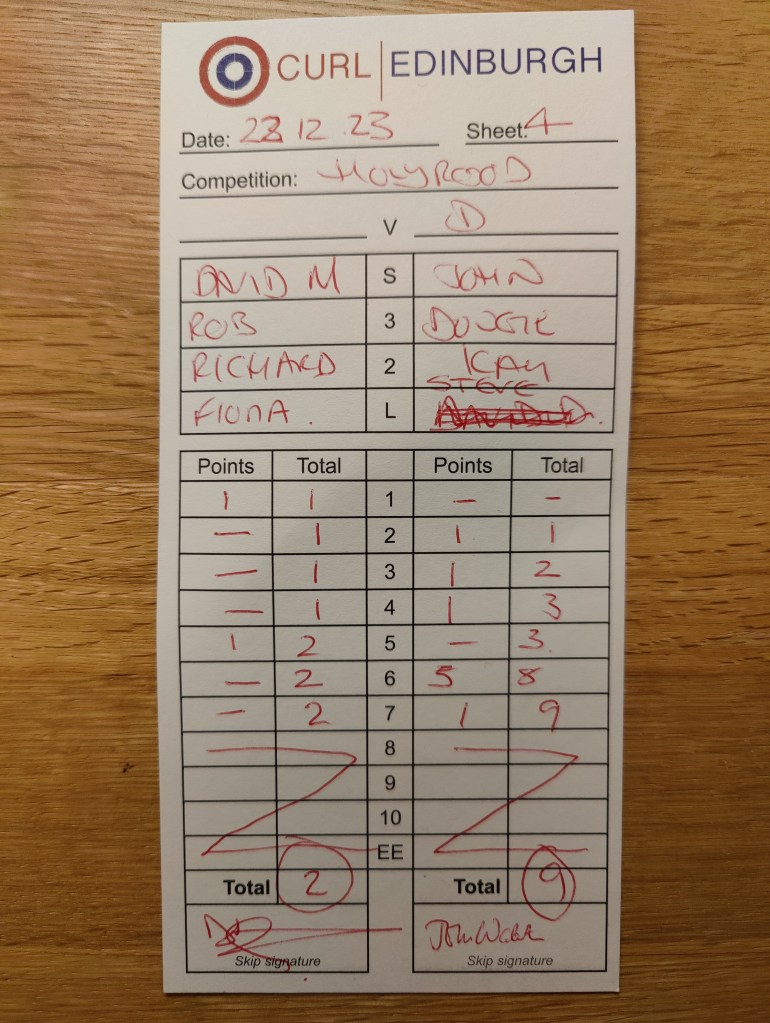 CURL | EDINBURGH
Date: 22 12 .23 Sheet: 4
Competition: HOLYROOD
V D
DAVID M S JOHN
ROB 3 DOUGIE
RICHARD 2 KAY
FIONA. L STEVE
Points Total Points Total
1 1 1 – –
– 1 2 1 1
– 1 3 1 2
– 1 4 1 3
1 2 5 – 3.
– 2 6 5 8
– 2 7 1 9
8
9
10
EE
Total 2 Total 9
Skip signature Skip signature